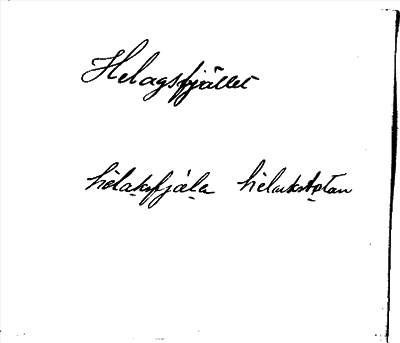 Helagsfjället
hèlaksfjäla hèlakstøtan